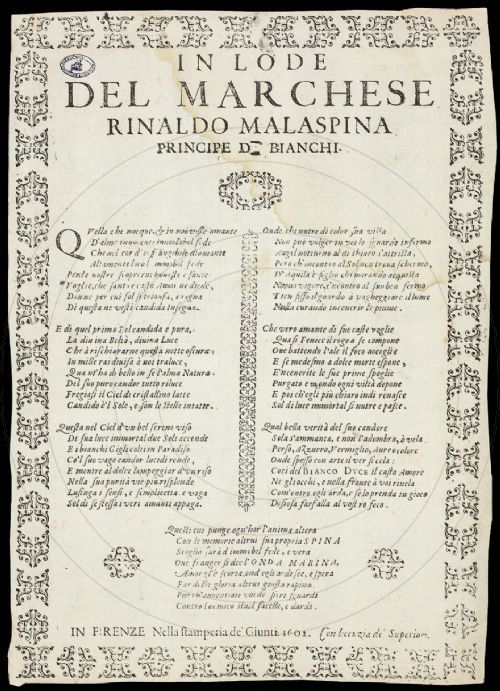 IN LODE
DEL MARCHESE
RINALDO MALASPINA
PRINCIPE D BIANCHI.
QVella che nacque, & in noi visse amante
D'alme
Che nel cor d'un frangibile diamante
Altamente locò immobil sede
Pensier nostre honeste e sante
Voglie, che fante caste Amor ne diede,
Donne per cui sol si trionfa, e regna
Di questa ne vestì candida insegna.
E di quel primo Sol candida e pura,
La diuina Beltà, diuina Luce
Che a rischiarare questa notte oscura
In mille rai diuisa à noi traluce,
Qua n'ha di bello in se l'alma Natura
Del suo puro candor tutto riluce
Fregiasi il Ciel di cristallino latte
Candido è'l Sole, e son le stelle intatte.
Questa nel Ciel d'un bel sereno viso
Di sua luce immortal due Sole accende
E i bianchi Gigli colti in Paradiso
Co'l suo vago candor lucidi rende,
E mentre al dolce lampeggiar d'un riso
Nella sua purità vie più risplende
Lusinga i sensi, e semplicetta e vaga
Sol di se stessa i veri amanti appaga.
Onde chi nutre di color sua vista
Non può volger in voi lo sguardo infermo
Augel notturno al di chiaro s'attrista,
Però ch'incontro al Sol non troua schermo,
D'Aquila è figlio chi mirando acquista
Nuouo vigore, e'ncontro al suo ben fermo
Tien fisso il guardo à vagheggiare il lume
Nulla curando incenerir le piume.
Che vero amante di sue caste voglie
Quasi Fenice il rogo se compone
Oue battendo l'ale il foco accoglie
E se medesmo a dolce morte espone,
E'ncenerite le sue prime spoglie
Purgato e mondo ogni viltà depone
E poi ch'egli più chiaro indi renasce
Sol di luce immortal si nutre e pasce.
Qual bella verità del suo candore
Sola s'ammanta, e non l'adombra, ò vela
Perso, Azzurro, Vermiglio, Aureo colore
Onde spesso con arte il ver si cela:
Così del BIANCO DVCE il casto Amore
Ne gli occhi, e nella fronte à voi riuela
Com'entro egli arda, e se lo prenda in gioco
Disiosa farfalla al vostro foco.
Questi cui punge ogn'hor l'anima altera
Con le memorie altrui sua propria SPINA
Scoglio sarà d'immobil fede, e vera
Oue frangersi dee l'ONDA MARINA,
Amor gl'è scorta, ond'egli arde se, e spera
Far della gloria altrui giusta rapina
Pur ch'auuentiate voi de' spirti sguardi
Contro l'nemico fiacelle, e dardi.
IN FIRENZE Nella stamperia de' Giunti 1602. Con licenzia de' Superiori.